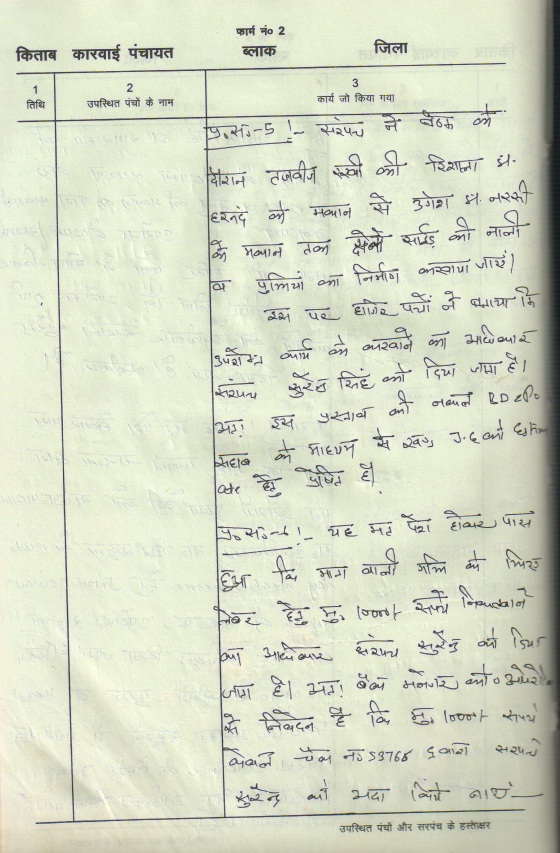 फार्म नं० 2
किताब कारवाई पंचायत ब्लाक जिला
1 2 3
तिथि उपस्थित पंचों के नाम कार्य जो किया गया
प्र.स.-5 !- सरपंच ने बैठक के
दौरान तजवीज रखी की रिशाला s/o
हरनंद के मकान से उमेश s/o नरसी
के मकान तक दोनो साईड की नाली
व पुलियां का निर्माण करवाया जाए।
इस पर हाजिर पंचों ने बताया कि
उपरोक्त कार्य को करवाने का अधिकार
सरपंच सुरेन्द्र सिंह को दिया जाता है।
अतः इस प्रस्ताव की नकल BDPO
साहब के माध्यम से खण्ड J.E को
हेतु प्रेषित है।
प्र.स.-6 !- यह मत पेश होकर पास
हुआ कि वाली गली के
लेबर हेतु मु. 10000/- रूपये निकलवाने
का अधिकार सरपंच सुरेन्द्र को दिया
जाता है। अतः बैंक मैनेजर को०
से निवेदन है कि मु. 10000/- रूपये
केवल चैक न० 53766 द्वारा सरपंच
सुरेन्द्र को अदा किये जाये —
उपस्थित पंचों और सरपंच के हस्ताक्षर